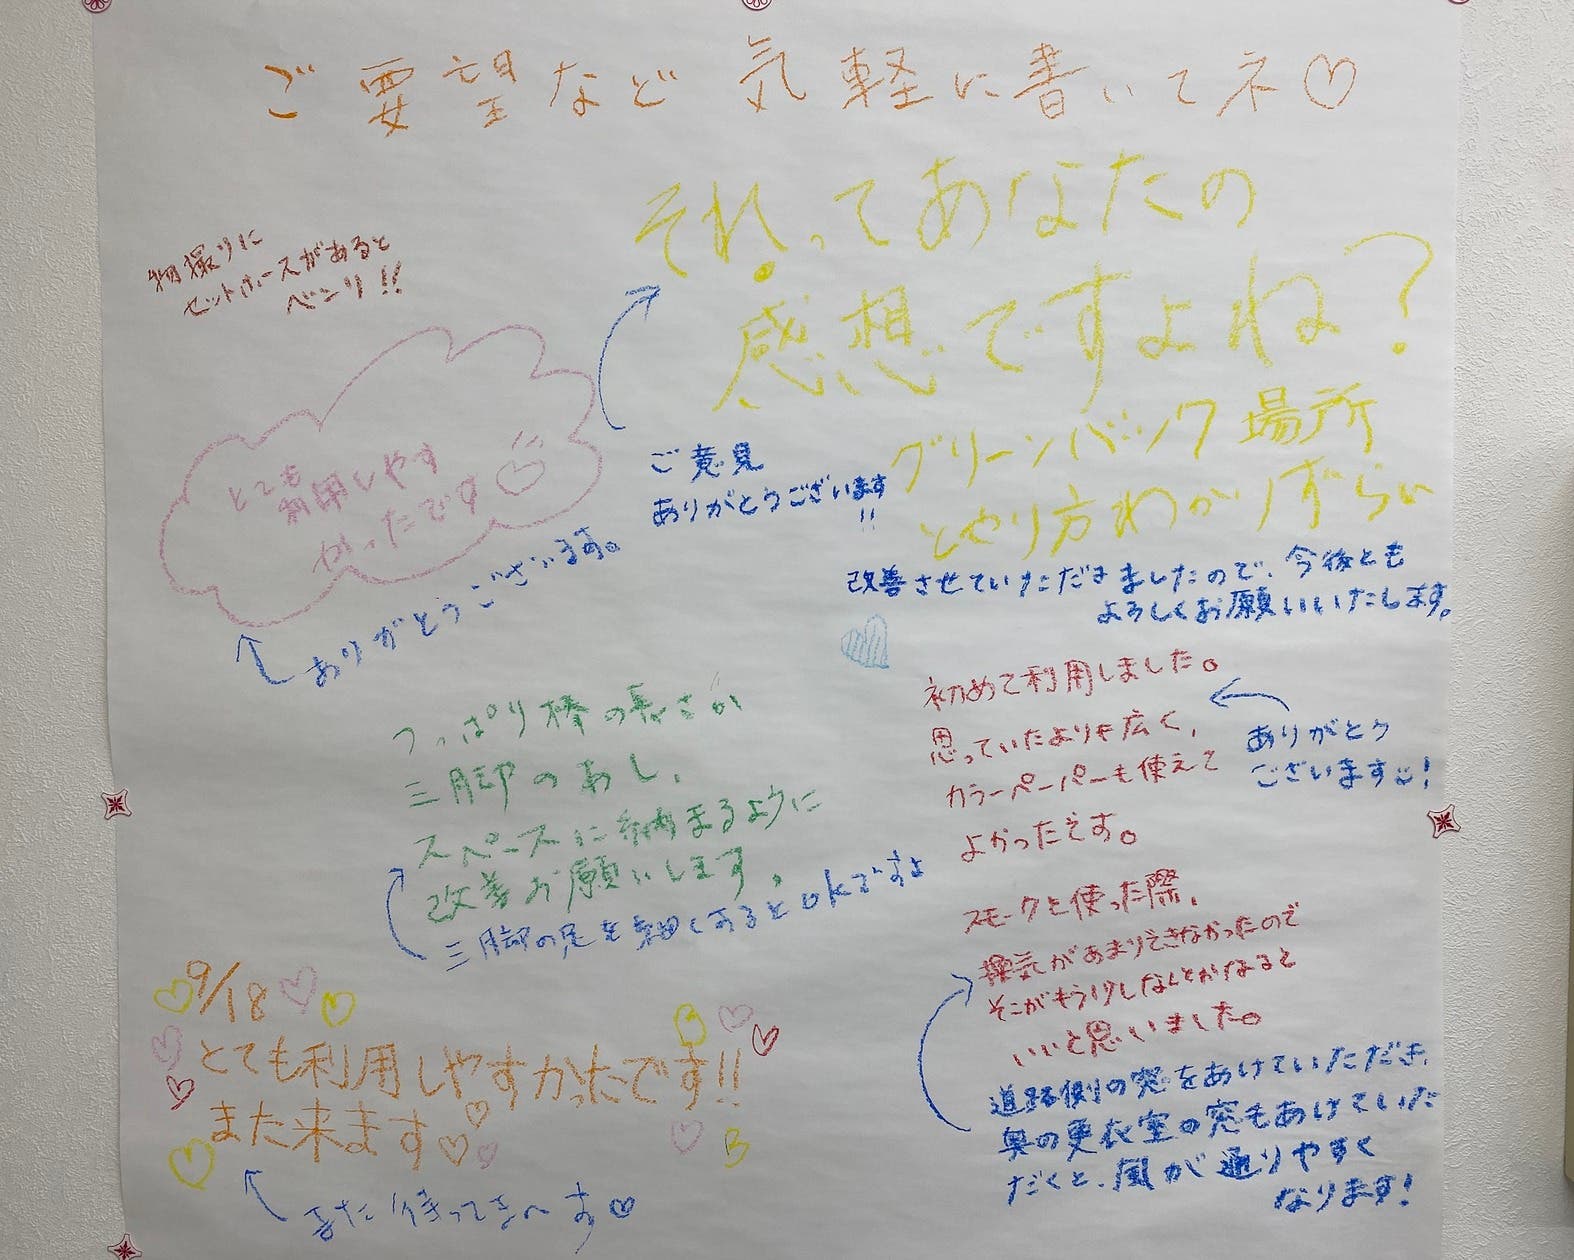 ご要望など 気軽に書いてネ♡
それってあなたの
感想ですよね?
物撮りに
セットホースがあると
ベンリ!!
とても
利用しやす
かったです
ありがとうございます。
ご意見
ありがとうございます
!!
グリーンバック 場所
とやり方わかりずらい
改善させていただきましたので、今後とも
よろしくお願いいたします。
つっぱり棒の長さが
三脚のあし、
スペースに納まるように
改善お願いします。
三脚の足を細くするとOKですよ
初めて利用しました。
思っていたよりも広く、
カラーペーパーも使えて
よかったです。
ありがとう
ございます!
スモークを使った際、
換気があまりできなかったので
そこがもう少しなんとかなると
いいと思いました。
道路側の窓をあけていただき、
奥の更衣室の窓もあけていた
だくと、風が通りやすく
なります!
9/18
とても利用しやすかったです!!
また来ます♡♡
また待ってま〜す♡